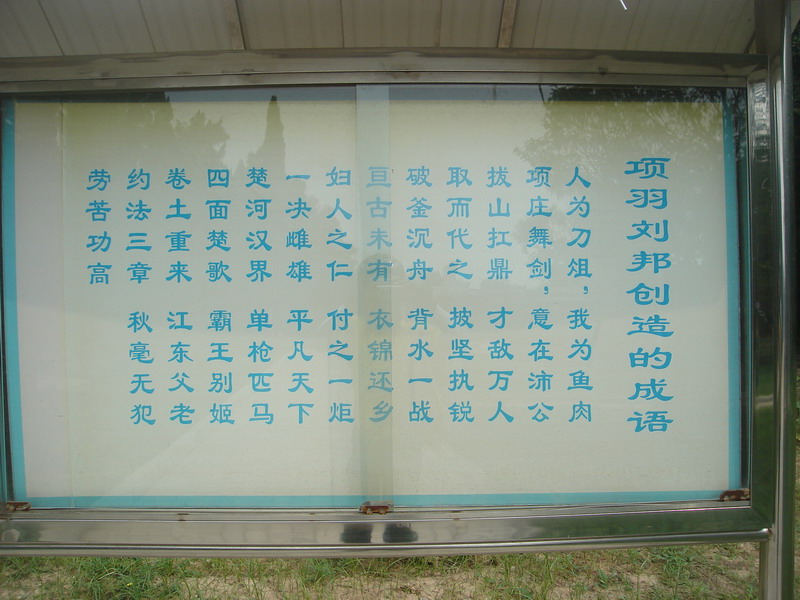 项羽刘邦创造的成语
人为刀俎，我为鱼肉
项庄舞剑，意在沛公
拔山扛鼎 才敌万人
取而代之 披坚执锐
破釜沉舟 背水一战
亘古未有 衣锦还乡
妇人之仁 付之一炬
一决雌雄 平凡天下
楚河汉界 单枪匹马
四面楚歌 霸王别姬
卷土重来 江东父老
约法三章 秋毫无犯
劳苦功高